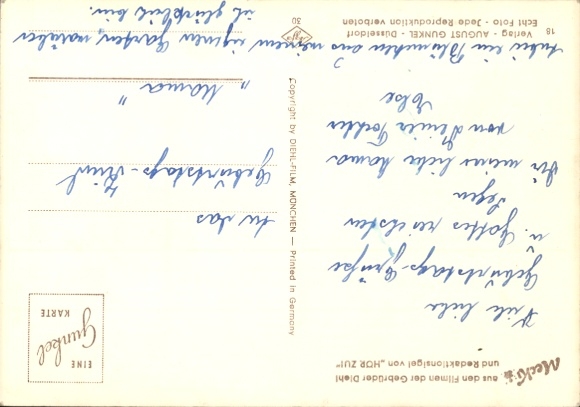 Mecki
aus den Filmen der Gebrüder Diehl
und Redaktionsigel von „HÖR ZU!"
EINE
Gunkel
KARTE
Viele liebe
Geburtstags-Grüße
u. Gottes reichsten
Segen
Dir meiner liebe Mama
von Deiner Tochter
Else
An das
Geburtstags-Kind
„ Mama "
Anbei ein Blümchen aus meinem eigenen Garten, worüber
ich glücklich bin.
Copyright by DIEHL-FILM, MÜNCHEN — Printed in Germany
18
Verlag - AUGUST GUNKEL - Düsseldorf
Echt Foto - Jede Reproduktion verboten
30